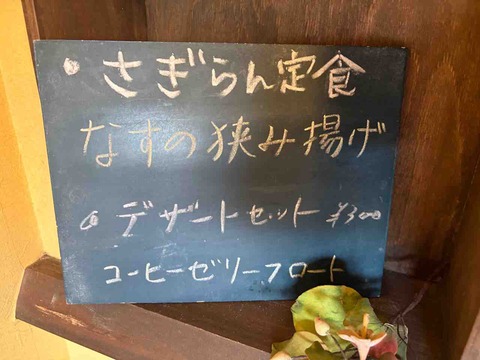 • さぎらん定食
なすの狭み揚げ
• デザートセット ¥300
コーヒーゼリーフロート